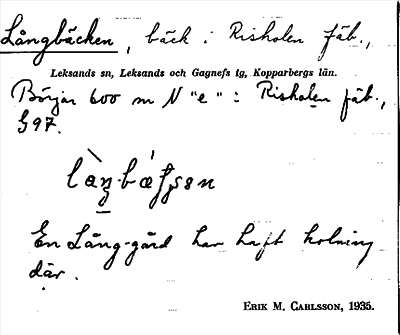 Långbäcken, bäck i Risholen fäb.,
Leksands sn, Leksands och Gagnefs tg, Kopparbergs län.
Börjar 600 m N "e" : Risholen fäb.,
G97.
En Lång-gård har haft kolning
där.
ERIK M. CARLSSON, 1935.